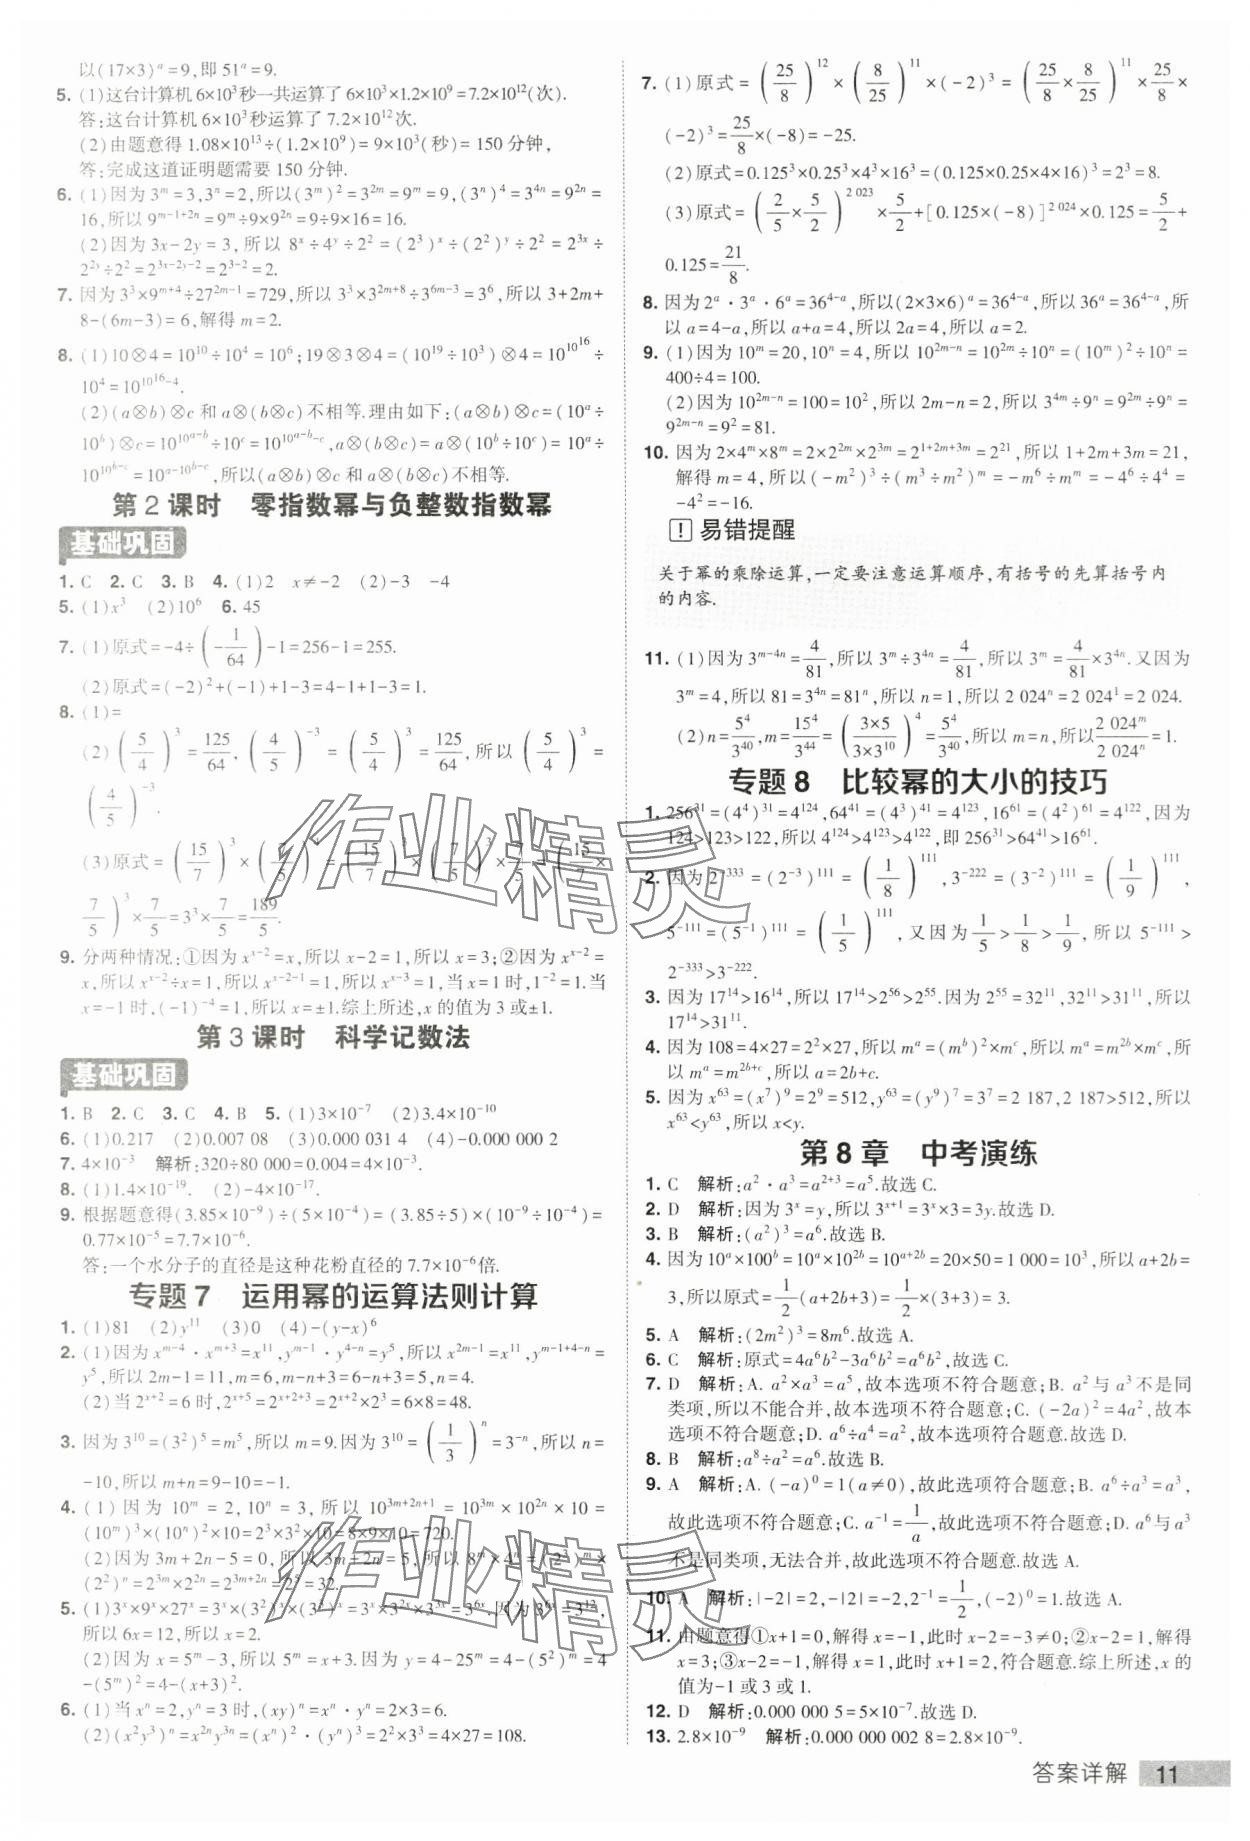 以(17×3)ᵃ=9,即51ᵃ=9.
5. (1)这台计算机6×10³秒一共运算了6×10³×1.2×10⁹=7.2×10¹²(次).
答:这台计算机6×10³秒运算了7.2×10¹²次.
(2)由题意得1.08×10¹³÷(1.2×10⁹)=9×10³(秒)=150分钟,
答:完成这道证明题需要150分钟.
6. (1)因为3ᵐ=3,3ⁿ=2,所以(3ᵐ)²=3²ᵐ=9ᵐ=9,(3ⁿ)⁴=3⁴ⁿ=9²ⁿ=
16,所以9ᵐ⁻¹⁺²ⁿ=9ᵐ÷9×9²ⁿ=9÷9×16=16.
(2)因为3x-2y=3,所以8ˣ÷4ʸ÷2²=(2³)ˣ÷(2²)ʸ÷2²=2³ˣ÷
2²ʸ÷2²=2³ˣ⁻²ʸ⁻²=2³⁻²=2.
7. 因为3³×9ᵐ⁺⁴÷27²ᵐ⁻¹=729,所以3³×3²ᵐ⁺⁸÷3⁶ᵐ⁻³=3⁶,所以3+2m+
8-(6m-3)=6,解得m=2.
8. (1)10⊗4=10¹⁰÷10⁴=10⁶;19⊗3⊗4=(10¹⁹÷10³)⊗4=10^(10^16)÷
10⁴=10^(10^16-4).
(2)(a⊗b)⊗c和a⊗(b⊗c)不相等.理由如下:(a⊗b)⊗c=(10ᵃ÷
10ᵇ)⊗c=10^(10^(a-b))÷10ᶜ=10^(10^(a-b)-c),a⊗(b⊗c)=a⊗(10ᵇ÷10ᶜ)=10ᵃ÷
10^(10^(b-c))=10^(a-10^(b-c)),所以(a⊗b)⊗c和a⊗(b⊗c)不相等.
第2课时 零指数幂与负整数指数幂
基础巩固
1. C 2. C 3. B 4. (1)2 x≠-2 (2)-3 -4
5. (1)x³ (2)10⁶ 6. 45
7. (1)原式=-4÷(-1/64)-1=256-1=255.
(2)原式=(-2)²+(-1)+1-3=4-1+1-3=1.
8. (1)=
(2)(5/4)³=125/64,(4/5)⁻³=(5/4)³=125/64,所以(5/4)³=
(4/5)⁻³.
(3)原式=(15/7)³×(7/5)⁴=(15/7)³×(7/5)³×7/5=(15/7×
7/5)³×7/5=3³×7/5=189/5.
9. 分两种情况:①因为xˣ⁻²=x,所以x-2=1,所以x=3;②因为xˣ⁻²=
x,所以xˣ⁻²÷x=1,所以xˣ⁻²⁻¹=1,所以xˣ⁻³=1,当x=1时,1⁻²=1.当
x=-1时,(-1)⁻⁴=1,所以x=±1.综上所述,x的值为3或±1.
第3课时 科学记数法
基础巩固
1. B 2. C 3. C 4. B 5. (1)3×10⁻⁷ (2)3.4×10⁻¹⁰
6. (1)0.217 (2)0.007 08 (3)0.000 031 4 (4)-0.000 000 2
7. 4×10⁻³ 解析:320÷80 000=0.004=4×10⁻³.
8. (1)1.4×10⁻¹⁹. (2)-4×10⁻¹⁷.
9. 根据题意得(3.85×10⁻⁹)÷(5×10⁻⁴)=(3.85÷5)×(10⁻⁹÷10⁻⁴)=
0.77×10⁻⁵=7.7×10⁻⁶.
答:一个水分子的直径是这种花粉直径的7.7×10⁻⁶倍.
专题7 运用幂的运算法则计算
1. (1)81 (2)y¹¹ (3)0 (4)-(y-x)⁶
2. (1)因为xᵐ⁻⁴·xᵐ⁺³=x¹¹,yᵐ⁻¹·y⁴⁻ⁿ=y⁵,所以x²ᵐ⁻¹=x¹¹,yᵐ⁻¹⁺⁴⁻ⁿ=
y⁵,所以2m-1=11,m=6,m-n+3=6-n+3=5,n=4.
(2)当2ˣ⁺²=6时,2ˣ⁺⁵=2ˣ⁺²⁺³=2ˣ⁺²×2³=6×8=48.
3. 因为3¹⁰=(3²)⁵=m⁵,所以m=9.因为3¹⁰=(1/3)ⁿ=3⁻ⁿ,所以n=
-10,所以m+n=9-10=-1.
4. (1)因为10ᵐ=2,10ⁿ=3,所以10³ᵐ⁺²ⁿ⁺¹=10³ᵐ×10²ⁿ×10=
(10ᵐ)³×(10ⁿ)²×10=2³×3²×10=8×9×10=720.
(2)因为3m+2n-5=0,所以3m+2n=5,所以8ᵐ×4ⁿ=(2³)ᵐ×
(2²)ⁿ=2³ᵐ×2²ⁿ=2³ᵐ⁺²ⁿ=2⁵=32.
5. (1)3ˣ×9ˣ×27ˣ=3ˣ×(3²)ˣ×(3³)ˣ=3ˣ×3²ˣ×3³ˣ=3⁶ˣ.因为3⁶ˣ=3¹²,
所以6x=12,所以x=2.
(2)因为x=5ᵐ-3,所以5ᵐ=x+3.因为y=4-25ᵐ=4-(5²)ᵐ=4
-(5ᵐ)²=4-(x+3)².
6. (1)当xⁿ=2,yⁿ=3时,(xy)ⁿ=xⁿ·yⁿ=2×3=6.
(2)(x²y³)ⁿ=x²ⁿy³ⁿ=(xⁿ)²·(yⁿ)³=2²×3³=4×27=108.
7. (1)原式=(25/8)¹²×(8/25)¹¹×(-2)³=(25/8×8/25)¹¹×25/8×
(-2)³=25/8×(-8)=-25.
(2)原式=0.125³×0.25³×4³×16³=(0.125×0.25×4×16)³=2³=8.
(3)原式=(2/5×5/2)²⁰²³×5/2+[0.125×(-8)]²⁰²⁴×0.125=5/2+
0.125=21/8.
8. 因为2ᵃ·3ᵃ·6ᵃ=36⁴⁻ᵃ,所以(2×3×6)ᵃ=36⁴⁻ᵃ,所以36ᵃ=36⁴⁻ᵃ,所
以a=4-a,所以a+a=4,所以2a=4,所以a=2.
9. (1)因为10ᵐ=20,10ⁿ=4,所以10²ᵐ⁻ⁿ=10²ᵐ÷10ⁿ=(10ᵐ)²÷10ⁿ=
400÷4=100.
(2)因为10²ᵐ⁻ⁿ=100=10²,所以2m-n=2,所以3⁴ᵐ÷9ⁿ=9²ᵐ÷9ⁿ=
9²ᵐ⁻ⁿ=9²=81.
10. 因为2×4ᵐ×8ᵐ=2×2²ᵐ×2³ᵐ=2¹⁺²ᵐ⁺³ᵐ=2²¹,所以1+2m+3m=21,
解得m=4,所以(-m²)³÷(m³÷m²)ᵐ=-m⁶÷mᵐ=-4⁶÷4⁴=
-4²=-16.
! 易错提醒
关于幂的乘除运算,一定要注意运算顺序,有括号的先算括号内
的内容.
11. (1)因为3ᵐ⁻⁴ⁿ=4/81,所以3ᵐ÷3⁴ⁿ=4/81,所以3ᵐ=4/81×3⁴ⁿ.又因为
3ᵐ=4,所以81=3⁴ⁿ=81ⁿ,所以n=1,所以2 024ⁿ=2 024¹=2 024.
(2)n=5⁴/3⁴⁰,m=15⁴/3⁴⁴=(3×5/3×3¹⁰)⁴=5⁴/3⁴⁰,所以m=n,所以2 024ᵐ/2 024ⁿ=1.
专题8 比较幂的大小的技巧
1. 256³¹=(4⁴)³¹=4¹²⁴,64⁴¹=(4³)⁴¹=4¹²³,16⁶¹=(4²)⁶¹=4¹²²,因为
124>123>122,所以4¹²⁴>4¹²³>4¹²²,即256³¹>64⁴¹>16⁶¹.
2. 因为2⁻³³³=(2⁻³)¹¹¹=(1/8)¹¹¹,3⁻²²²=(3⁻²)¹¹¹=(1/9)¹¹¹,
5⁻¹¹¹=(5⁻¹)¹¹¹=(1/5)¹¹¹,又因为1/5>1/8>1/9,所以5⁻¹¹¹>
2⁻³³³>3⁻²²².
3. 因为17¹⁴>16¹⁴,所以17¹⁴>2⁵⁶>2⁵⁵.因为2⁵⁵=32¹¹,32¹¹>31¹¹,所以
17¹⁴>31¹¹.
4. 因为108=4×27=2²×27,所以mᵃ=(mᵇ)²×mᶜ,所以mᵃ=m²ᵇ×mᶜ,所
以mᵃ=m²ᵇ⁺ᶜ,所以a=2b+c.
5. 因为x⁶³=(x⁷)⁹=2⁹=512,y⁶³=(y⁹)⁷=3⁷=2 187,2 187>512,所以
x⁶³<y⁶³,所以x<y.
第8章 中考演练
1. C 解析:a²·a³=a²⁺³=a⁵.故选C.
2. D 解析:因为3ˣ=y,所以3ˣ⁺¹=3ˣ×3=3y.故选D.
3. B 解析:(a²)³=a⁶.故选B.
4. 因为10ᵃ×100ᵇ=10ᵃ×10²ᵇ=10ᵃ⁺²ᵇ=20×50=1 000=10³,所以a+2b=
3,所以原式=1/2(a+2b+3)=1/2×(3+3)=3.
5. A 解析:(2m²)³=8m⁶.故选A.
6. C 解析:原式=4a⁶b²-3a⁶b²=a⁶b²,故选C.
7. D 解析:A. a²×a³=a⁵,故本选项不符合题意;B. a²与a³不是同
类项,所以不能合并,故本选项不符合题意;C. (-2a)²=4a²,故本
选项不符合题意;D. a⁶÷a⁴=a²,故本选项符合题意.故选D.
8. B 解析:a⁸÷a²=a⁶.故选B.
9. A 解析:A. (-a)⁰=1(a≠0),故此选项符合题意;B. a⁶÷a³=a³,
故此选项不符合题意;C. a⁻¹=1/a,故此选项不符合题意;D. a²与a³
不是同类项,无法合并,故此选项不符合题意.故选A.
10. A 解析:|-2|=2,-|2|=-2,2⁻¹=1/2,(-2)⁰=1.故选A.
11. 由题意得①x+1=0,解得x=-1,此时x-2=-3≠0;②x-2=1,解得
x=3;③x-2=-1,解得x=1,此时x+1=2,符合题意.综上所述,x的
值为-1或3或1.
12. D 解析:0.000 000 5=5×10⁻⁷.故选D.
13. 2.8×10⁻⁹ 解析:0.000 000 002 8=2.8×10⁻⁹.
答案详解 11
作业精灵
作业精灵